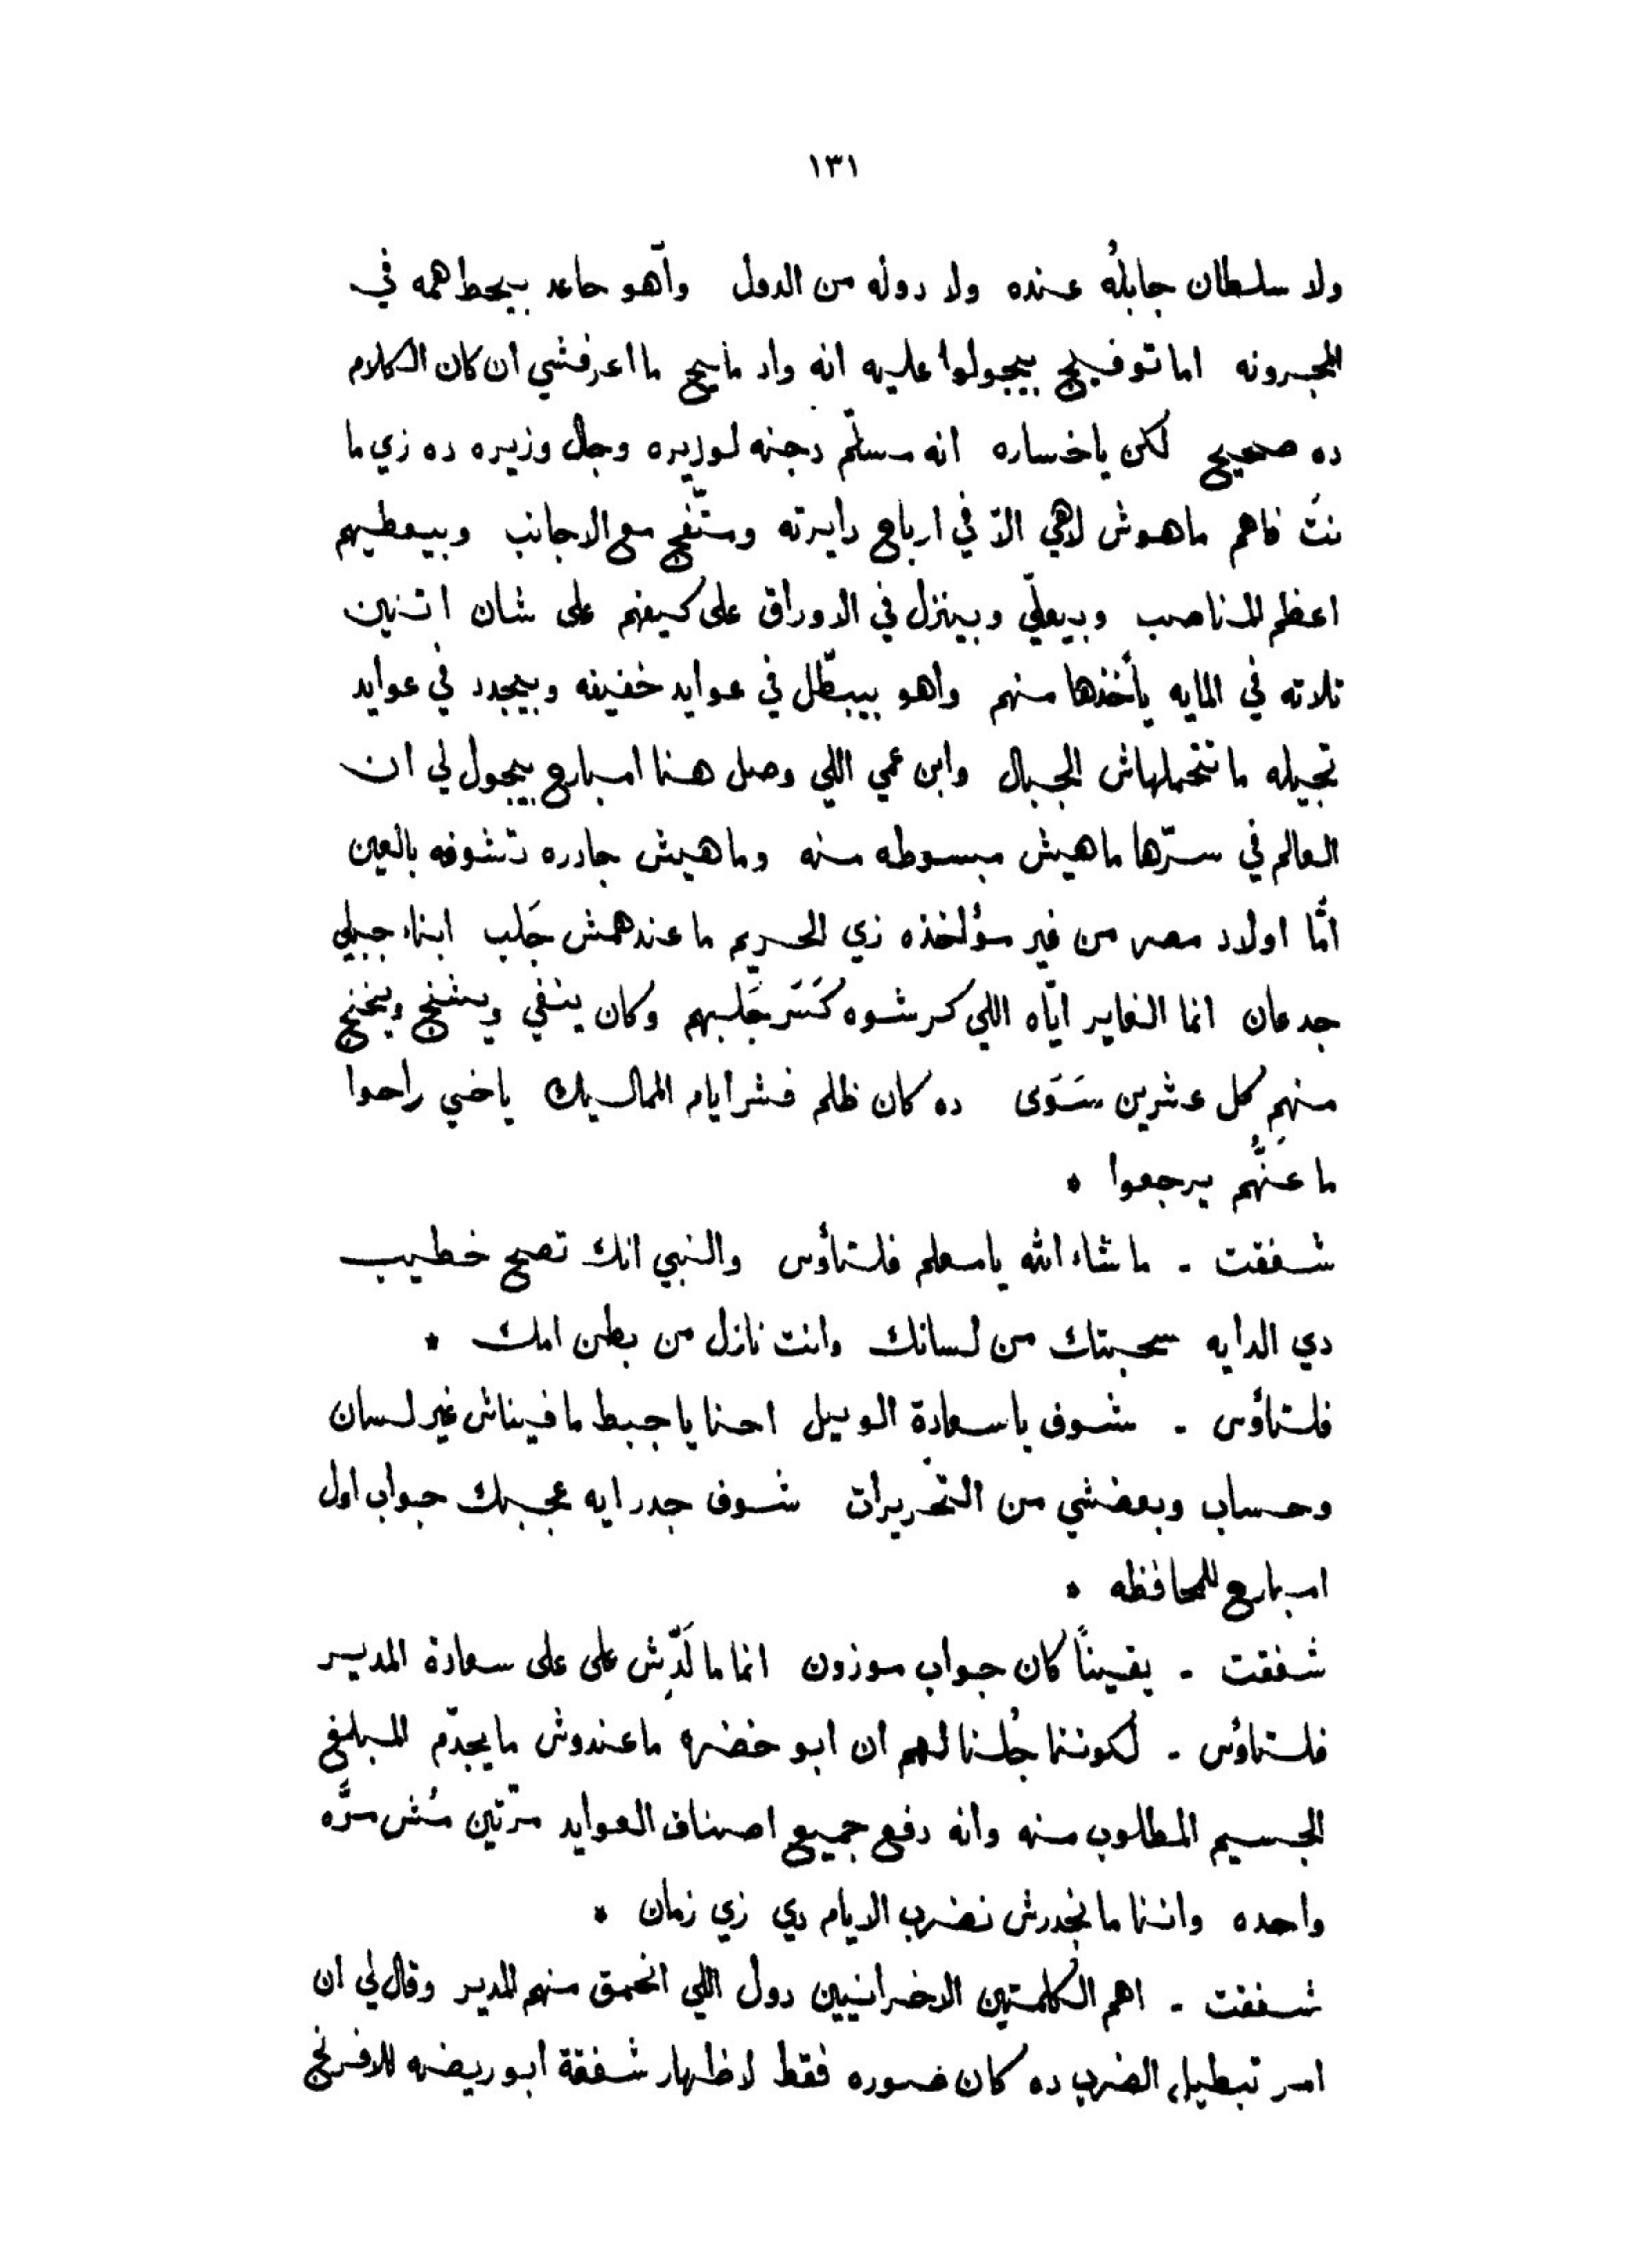 ١٣١
ولا سلطان جابله عنده ولا دوله من الدول وآهو جاعد بيحط همه في
الجرونه اما توفيج بيجولوا عليه انه واد مايج ما اعرفشي ان كان الكلام
ده صحيح لكن ياخساره انه مسلّم دجنه لوزيره وجال وزيره ده زي ما
نتَ فاهم ماهوش لاهي الاّ في ارباح دايرته ومتّفج مع الاجانب وبيعطيهم
اعظم المناصب وبيعلّي وبينزل في الاوراق على كيفهم على شان اتنين
تلاته في المايه يأخذها منهم واهو بيبطّل في عوايد خفيفه وبيجدد في عوايد
تجيله ما تتحملهاش الجبال وابن عمي اللي وصل هنا امبارح بيجول لي ان
العالم في سرّها ماهيش مبسوطه منه وماهيش جادره تشوفه بالعين
أمّا اولاد مصر من غير مؤاخذه زي الحريم ما عندهمش جَلب ابناء جبلي
جدعان انما الفاير ايّاه اللي كرشوه كَسَر جَلبهم وكان ينفي ويشنج ويخنج
منهم كل عشرين سَوَى ده كان ظلم فشر ايام المماليك ياخي راحوا
ما عَنُّهم يرجعوا *
شفقت - ما شاء الله يا معلم فلتاؤس والنبي انك تصح خطيب
دي الدايه سحبتك من لسانك وانت نازل من بطن امك *
فلتاؤس - شوف ياسعادة الوبيل احنا يا جبط ما فيناش غير لسان
وحساب وبعضشي من التحريرات شوف جدر ايه عجبك جواب اول
امبارح للمحافظه *
شفقت - يقيناً كان جواب موزون انما ما لَدِّش على على سعادة المدير
فلتاؤس - لكوننا جُلنا لهم ان ابو خضره ماعندوش ما يجدّم المبلغ
الجسيم المطلوب منه وانه دفع جميع اصناف العوايد مرّتين مُش مرَّه
واحده واننا ما نجدرش نضرب الايام دي زي زمان *
شفقت - اهم الكلمتين الاخرانيين دول اللي انحمق منهم المدير وقال لي ان
امر تبطيل الضرب ده كان صوره فقط لاظهار شفقة ابو ريضه للافرنج